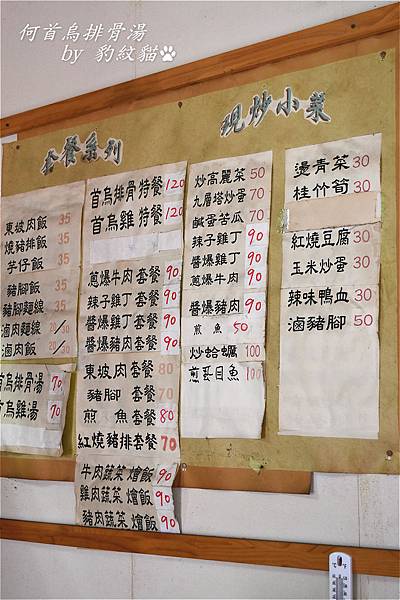 何首烏排骨湯
by 豹紋貓
套餐系列
現炒小菜
東坡肉飯 35
燒豬排飯 35
芋仔飯 35
豬腳飯 35
豬腳麵線
滷肉麵線
滷肉飯 20/30
首烏排骨湯 70
首烏雞湯 70
首烏排骨特餐 120
首烏雞特餐 120
蔥爆牛肉套餐 90
辣子雞丁套餐 90
醬爆雞丁套餐 90
醬爆豬肉套餐 90
東坡肉套餐 80
豬腳套餐 70
煎魚套餐 80
紅燒豬排套餐 70
牛肉蔬菜燴飯 90
雞肉蔬菜燴飯 90
豬肉蔬菜燴飯 90
炒高麗菜 50
九層塔炒蛋 70
鹹蛋苦瓜 70
辣子雞丁 90
醬爆雞丁 90
蔥爆牛肉 90
醬爆豬肉 90
煎魚 50
炒蛤蠣 100
煎虱目魚 100
燙青菜 30
桂竹筍 30
紅燒豆腐 30
玉米炒蛋 30
辣味鴨血 30
滷豬腳 50